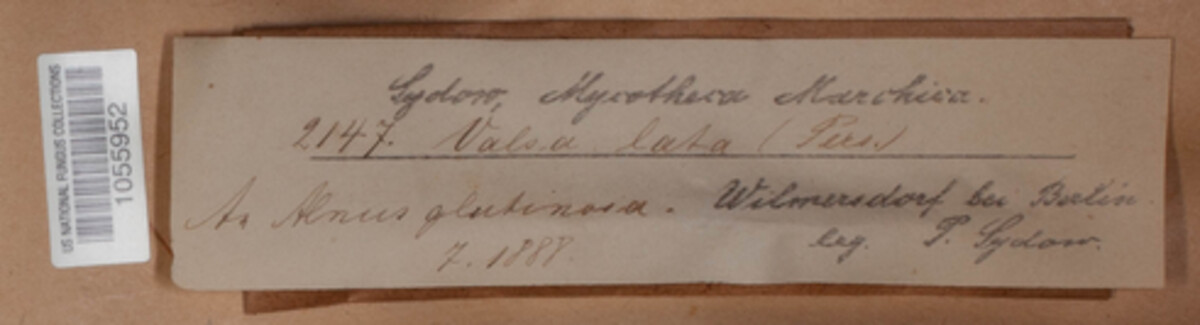 US NATIONAL FUNGUS COLLECTIONS
1055952
Sydow, Mycotheca Marchica.
2147. Valsa lata (Pers.)
An Alnus glutinosa. Wilmersdorf bei Berlin.
7. 1888. leg. P. Sydow.